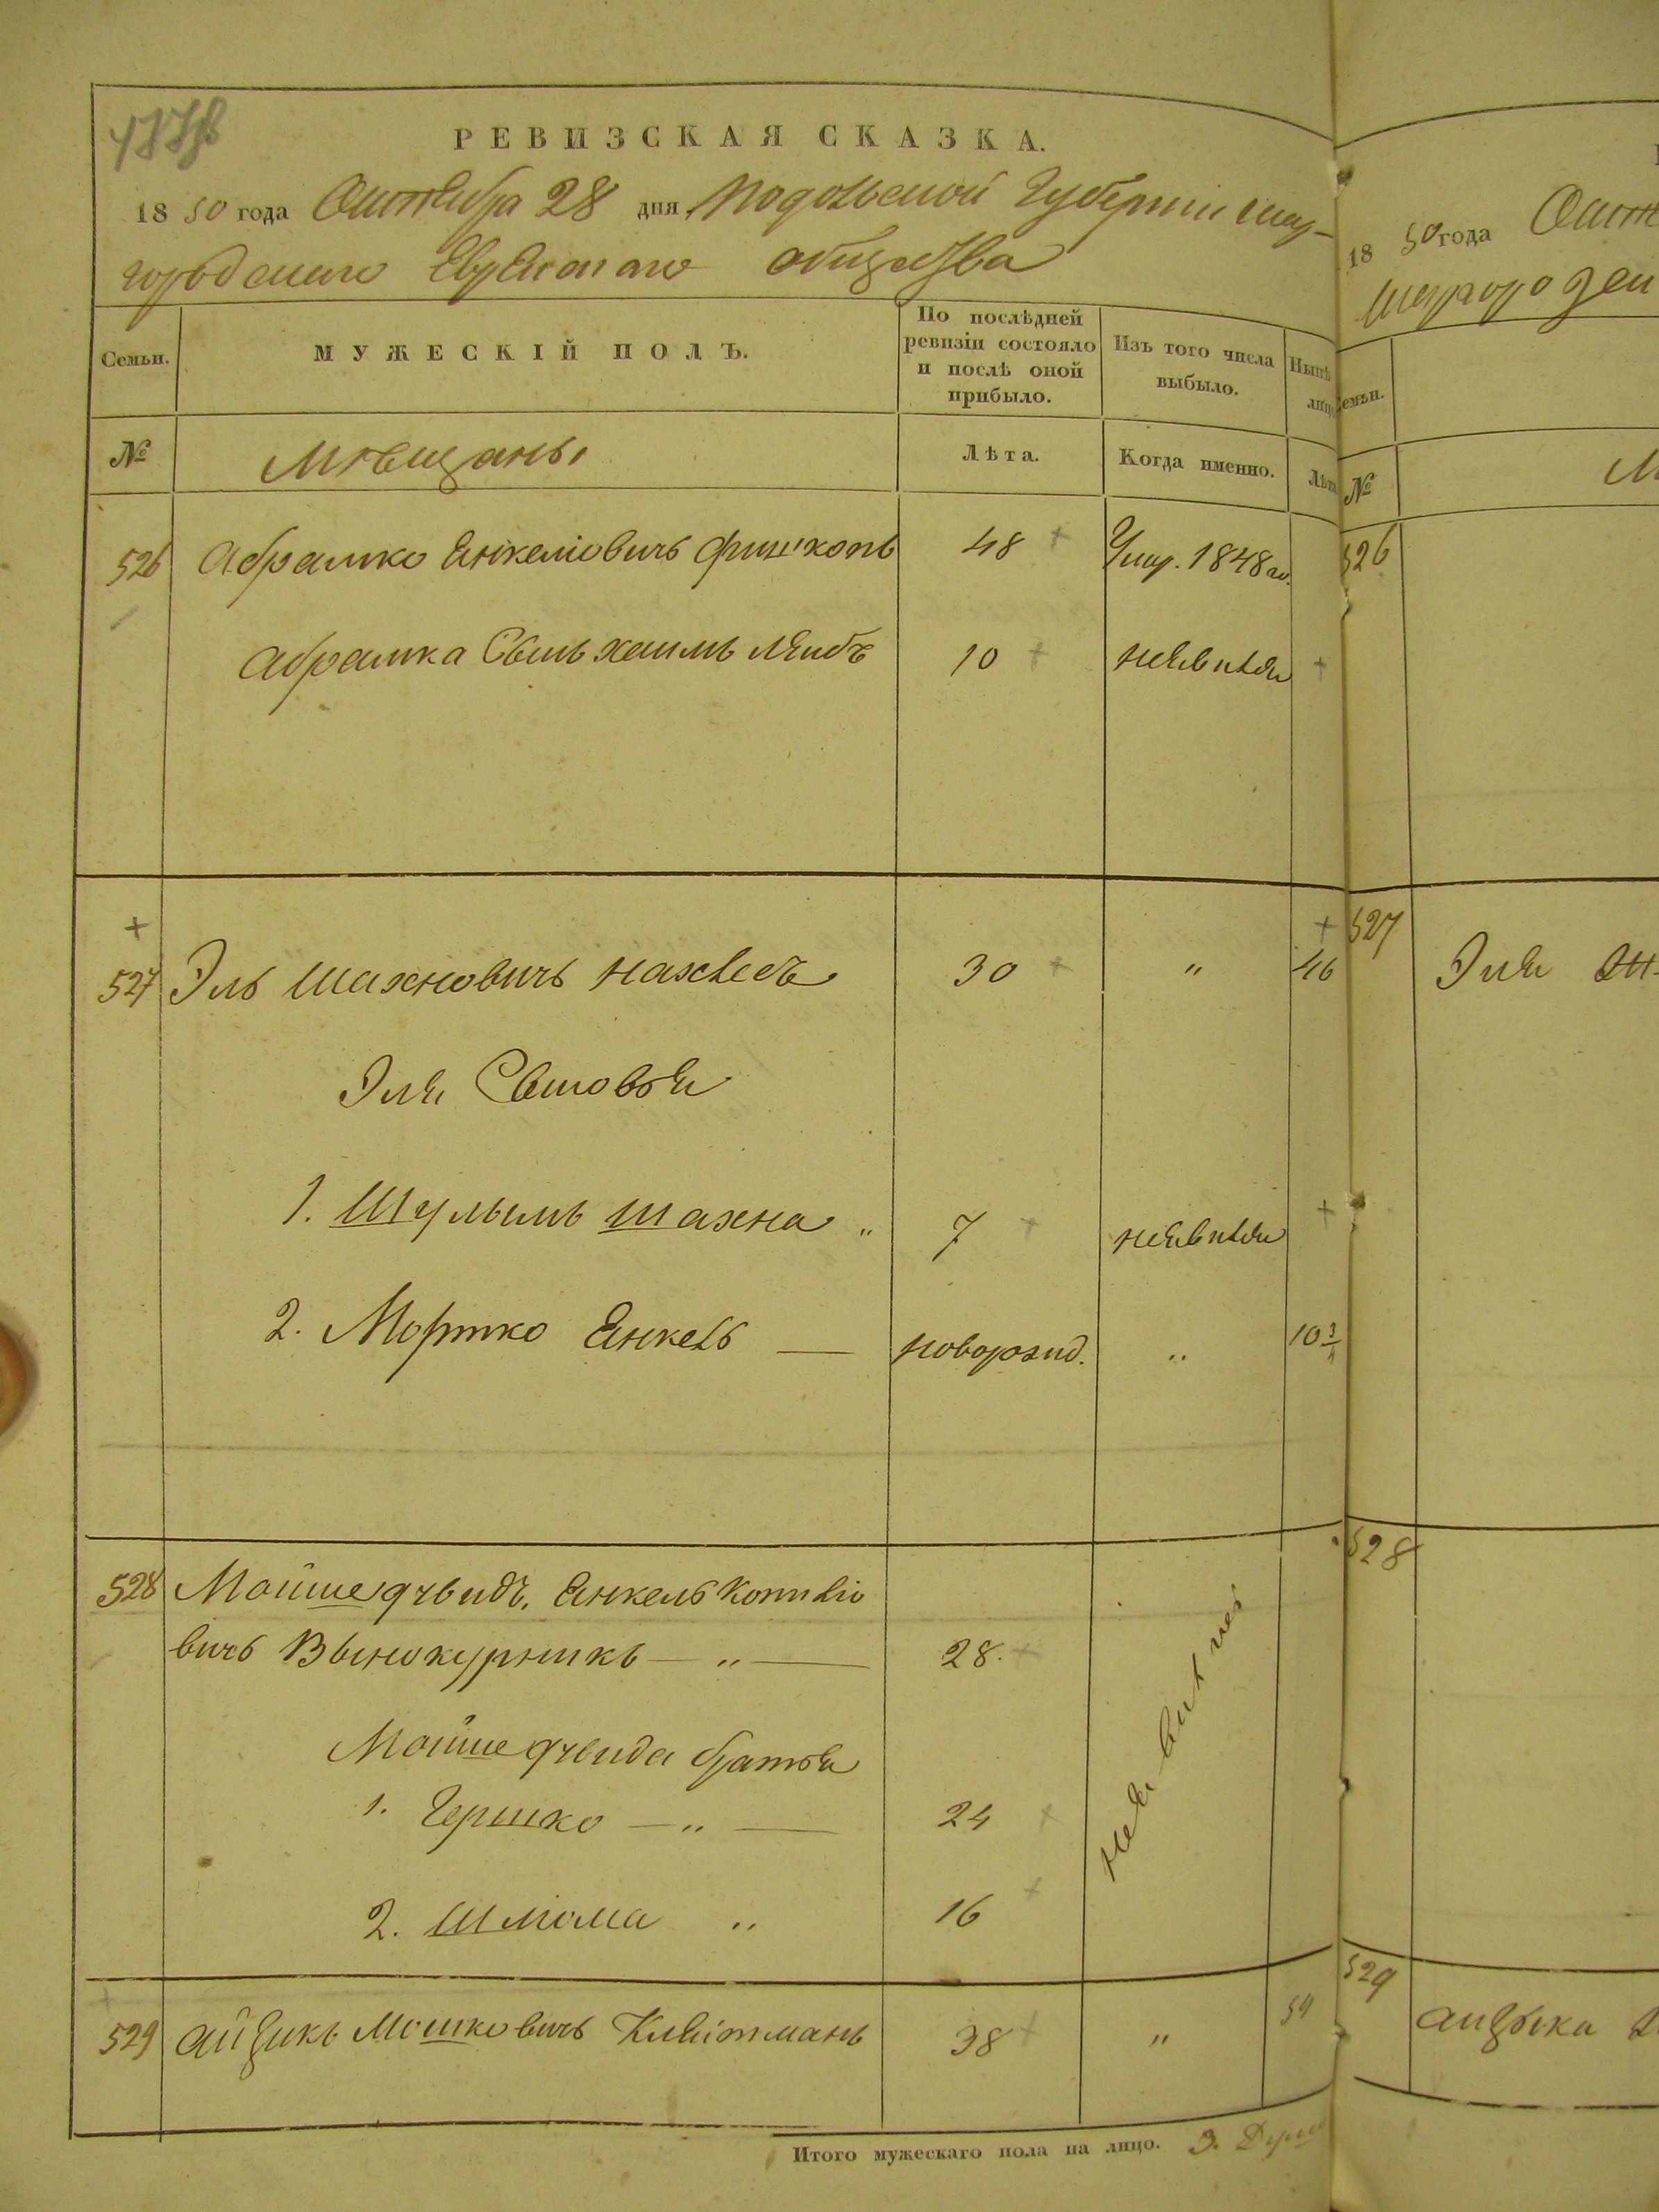 РЕВИЗСКАЯ СКАЗКА.
1850 года Октября 28 дня Подольской Губернии Шар-
городскаго Еврейскаго общества
Семьи. МУЖЕСКІЙ ПОЛЪ. По послѣдней ревизіи состояло и послѣ оной прибыло. Изъ того числа выбыло. Нынѣ лицо
№ Мѣщаны Лѣта. Когда именно. Лѣта
526 Абрамко Янкеліовичъ Фишкопъ 48 Умер. 1848 го.
Абрамка Сынъ Хаимъ Лейбъ 10 неявился
527 Эль Шахновичъ 30 " 46
Эля Сыновья
1. Шулымъ Шахна " 7 неявился
2. Мортко Янкель — новорожд. " 10 3/4
528 Мойше дувидъ, Янкель Копиліо
вичъ Вынокурникъ — " — 28.
Мойше дувида братья
1. Гершко — " — 24
2. Шлома " 16
неявились
529 Айзикъ Мошковичъ Клейтманъ 38 " 54
Итого мужескаго пола на лицо. 3. Души
1850 года Октя
Шаргородск
Семьи.
№
526
527 Эли
528
529 Айзыка